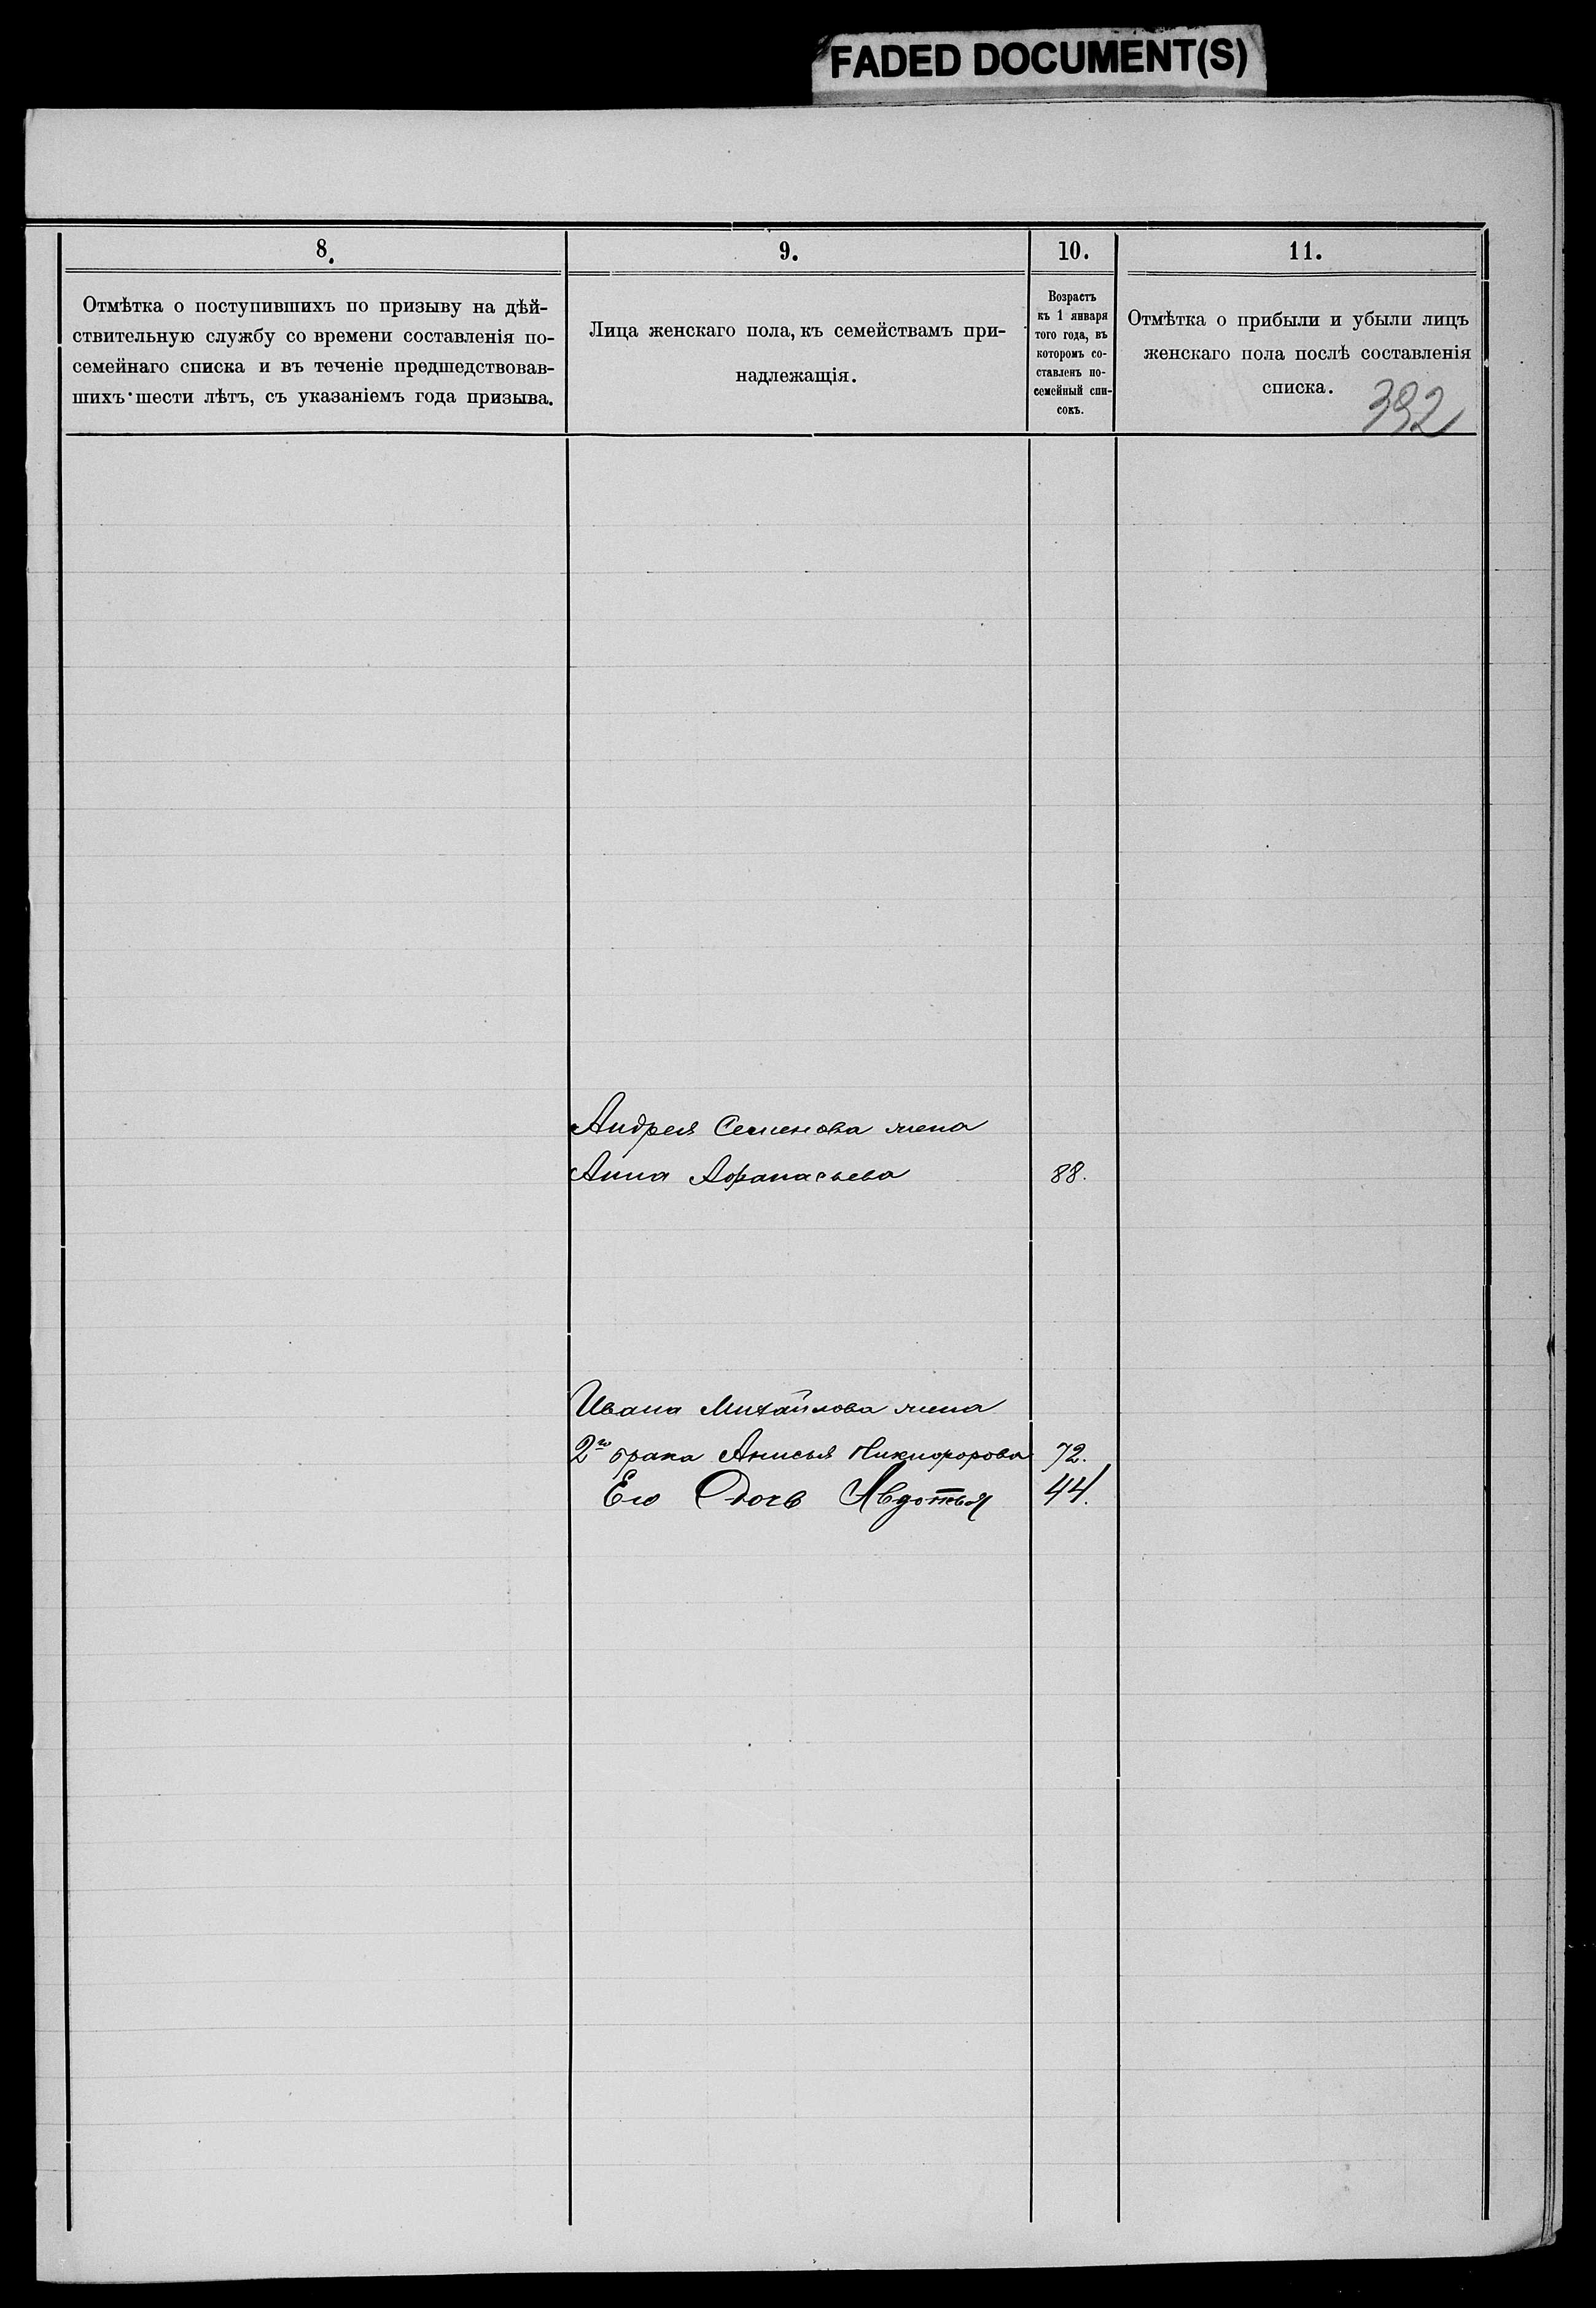 FADED DOCUMENT(S)
8.
9.
10.
11.
Отмѣтка о поступившихъ по призыву на дѣй-
ствительную службу со времени составленія по-
семейнаго списка и въ теченіе предшедствовав-
шихъ шести лѣтъ, съ указаніемъ года призыва.
Лица женскаго пола, къ семействамъ при-
надлежащія.
Возрастъ
къ 1 января
того года, въ
которомъ со-
ставленъ по-
семейный спи-
сокъ.
Отмѣтка о прибыли и убыли лицъ
женскаго пола послѣ составленія
списка.
392
Андрея Семенова жена
Анна Афанасьева 88.
Ивана Михайлова жена
2го брака Анисья Никифорова 72.
Его Дочь Авдотья 44.